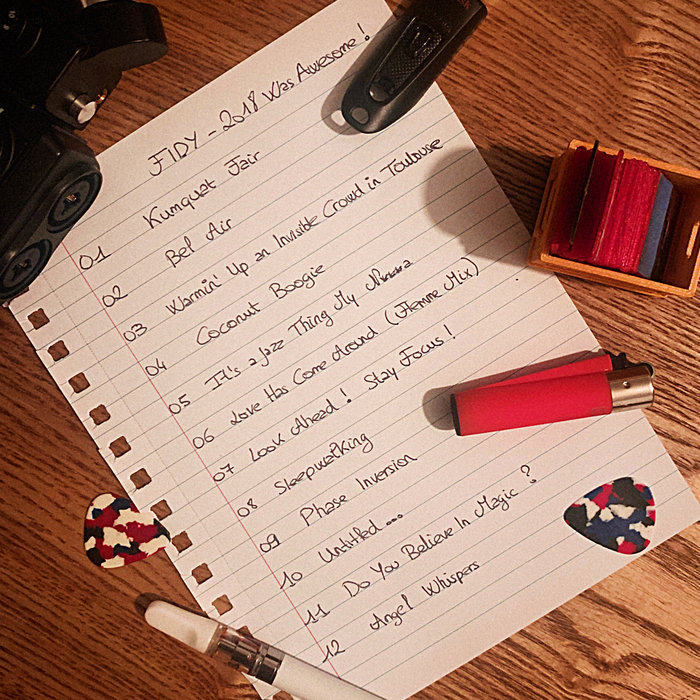 FIDY - 2018 Was Awesome !
01 Kumquat Fair
02 Bel Air
03 Warmin' Up an Invisible Crowd in Toulouse
04 Coconut Boogie
05 It's a Jazz Thing My
06 Love Has Come Around (Flemme Mix)
07 Look Ahead ! Stay Focus !
08 Sleepwalking
09 Phase Inversion
10 Untitled ...
11 Do You Believe In Magic ?
12 Angel Whispers